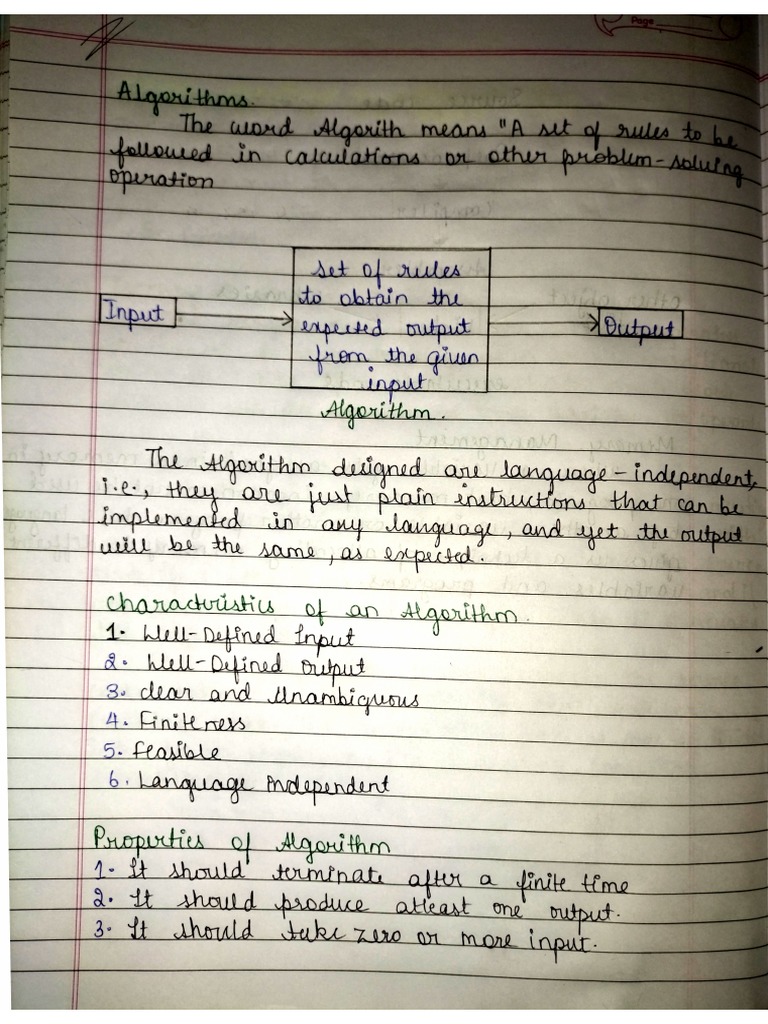 Page
Algorithms.
The word Algorith means "A set of rules to be
followed in calculations or other problem-solving
operation
set of rules
to obtain the
expected output
from the given
input
Input
Output
Algorithm.
The Algorithm designed are language-independent,
i.e., they are just plain instructions that can be
implemented in any language, and yet the output
will be the same, as expected.
Characteristics of an Algorithm.
1. Well-Defined Input
2. Well-Defined Output
3. Clear and Unambiguous
4. Finiteness
5. Feasible
6. Language Independent
Properties of Algorithm
1. It should terminate after a finite time
2. It should produce atleast one output.
3. It should take zero or more input.